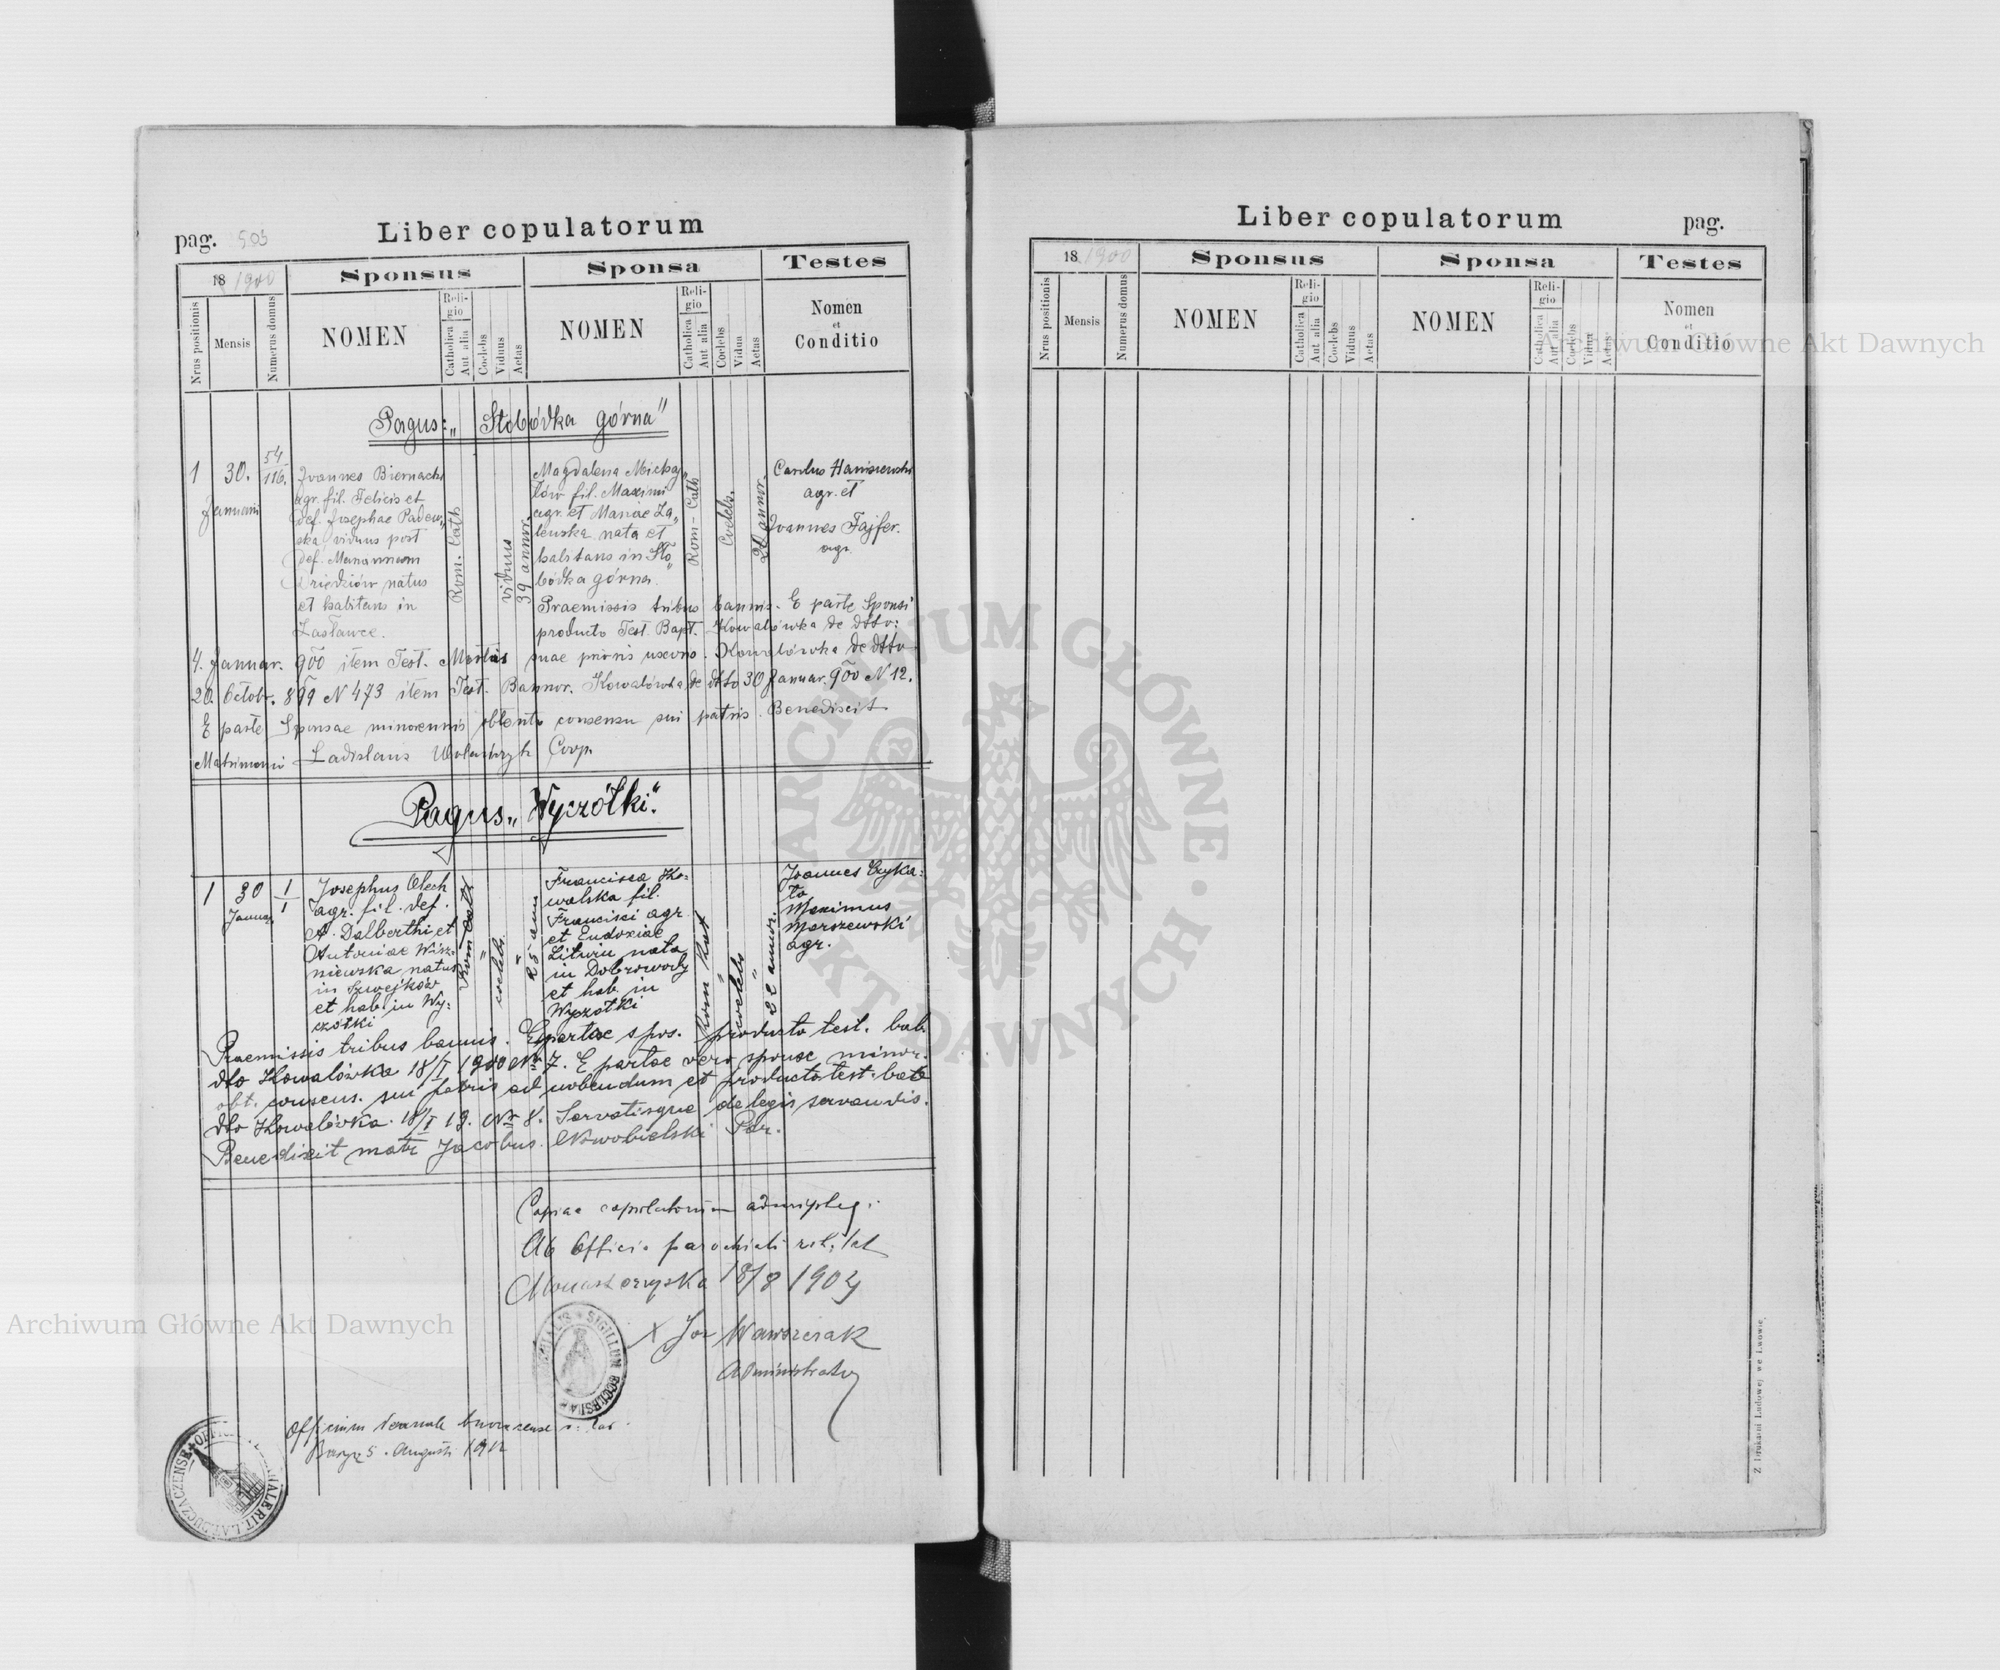 Liber copulatorum
pag. 503
18 1900
Sponsus
Sponsa
Testes
Nrus positionis
Mensis
Numerus domus
NOMEN
Religio
Catholica
Aut alia
Coelebs
Viduus
Aetas
NOMEN
Religio
Catholica
Aut alia
Coelebs
Vidua
Aetas
Nomen
et
Conditio
Pagus: „Słobódka górna"
1
30.
Januarii
54
116.
Joannes Biernacki
agr. fil. Felicis et
def. Josephae Padew„
ska viduus post
def. Mariannam
Dziedziów natus
et habitans in
Zasławce.
Rom. Cath
viduus
39 annor.
Magdalena Michaj„
łów fil. Maximi
agr. et Mariae Za„
leuska nata et
habitans in Sło„
bódka górna.
Rom-Cath
Coelebs.
20 annor.
Carolus Haniszewski
agr. et
Joannes Fajfer.
agr.
Praemissis tribus bannis. E parte Sponsi
producto Test. Bapt. Kowalówka de dtto:
4. Januar. 900 item Test. Mortis suae prioris uxoris. Kowalówka de dtto
20. Octobr. 899 N 473 item Test. Bannor. Kowalówka de dtto 30 Januar. 900 N 12.
E parte Sponsae minorennis obtento consensu sui patris. Benedixit
Matrimonio Ladislaus Coop.
Pagus „Wyczółki".
1
30
Januar.
1
1
Josephus Olech
agr. fil. def.
A. Dalberthi et
Antoniae Wisz-
niewska natus
in Szwejków
et hab. in Wy:
czółki
Rom Cath
coelebs.
25 ann
Francisca Ko-
walska fil.
Francisci agr
et Eudoxiae
Litwin nata
in Dobrowody
et hab. in
Wyczółki
Rom Kat
coelebs
22 annor.
Joannes Cryka:
to
Maximus
Marszewski
agr.
Praemissis tribus bannis. Expartae spos. producto test. bab.
dto Kowalówka 18/I 1900 Nr 7. E partae vero sponse minor.
obt. consens. sui patris ad nubendum et producto test. bate
dto Kowalówka. 18/I 19. Nr 8. Servatisque de legis servandis.
Benedixit matr Jacobus Nowobielski Par.
Copiae copulatorum
Ab Officio parochiali r. l. lat
Monasterzyska 18/8 1904
X Joz Wawszczak
Administrator
SIGILLUM ECCLESIA
Officium
5. Augusti 1912
Liber copulatorum
pag.
18 1900
Sponsus
Sponsa
Testes
Nrus positionis
Mensis
Numerus domus
NOMEN
Religio
Catholica
Aut alia
Coelebs
Viduus
Aetas
NOMEN
Religio
Catholica
Aut alia
Coelebs
Vidua
Aetas
Nomen
et
Conditio
Z Drukarni Ludowej we Lwowie.
Archiwum Główne Akt Dawnych
Archiwum Główne Akt Dawnych
ARCHIWUM GŁÓWNE AKT DAWNYCH